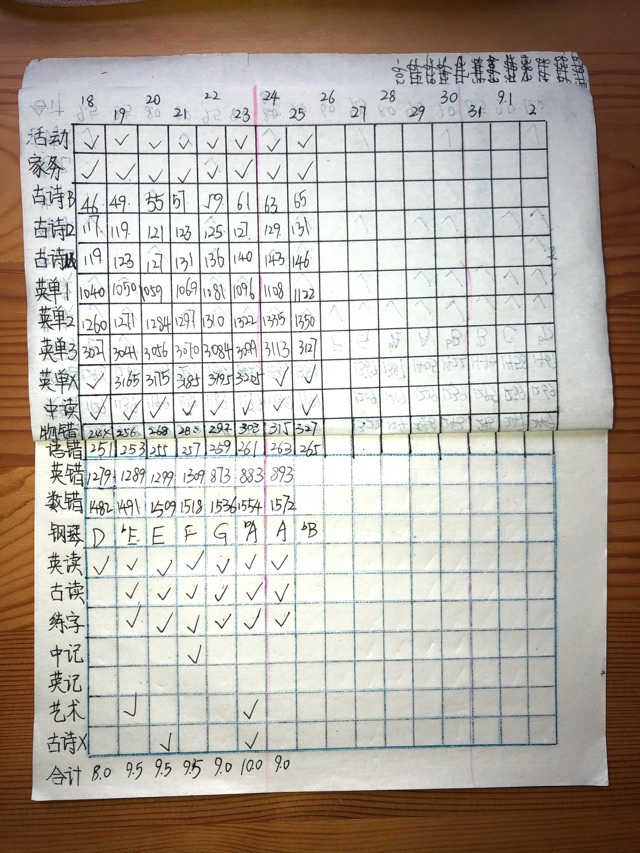 18 19 20 21 22 23 24 25 26 27 28 29 30 31 9.1 2
活动 ✓ ✓ ✓ ✓ ✓ ✓ ✓ ✓
家务 ✓ ✓ ✓ ✓ ✓ ✓ ✓ ✓
古诗B 46 49 55 57 59 61 63 65
古诗2 117 119 121 123 125 127 129 131
古诗 119 123 127 131 136 140 143 146
英单1 1040 1050 1059 1069 1081 1096 1108 1122
英单2 1260 1271 1284 1297 1310 1322 1335 1350
英单3 3027 3041 3056 3070 3084 3099 3113 3127
英单X ✓ 3165 3175 3185 3195 ✓ ✓
中读 ✓ ✓ ✓ ✓ ✓ ✓ ✓ ✓
物错 256 268 280 292 303 315 327
语错 251 253 255 257 259 261 263 265
英错 1279 1289 1299 1309 873 883 893
数错 1482 1491 1509 1518 1536 1554 1572
钢琴 D ♭E E F G ♭A A ♭B
英读 ✓ ✓ ✓ ✓ ✓ ✓ ✓
古读 ✓ ✓ ✓ ✓ ✓ ✓
练字 ✓ ✓ ✓ ✓ ✓ ✓
中记 ✓
英记
艺术 ✓ ✓
古诗X ✓ ✓
合计 8.0 9.5 9.5 9.5 9.0 10.0 9.0